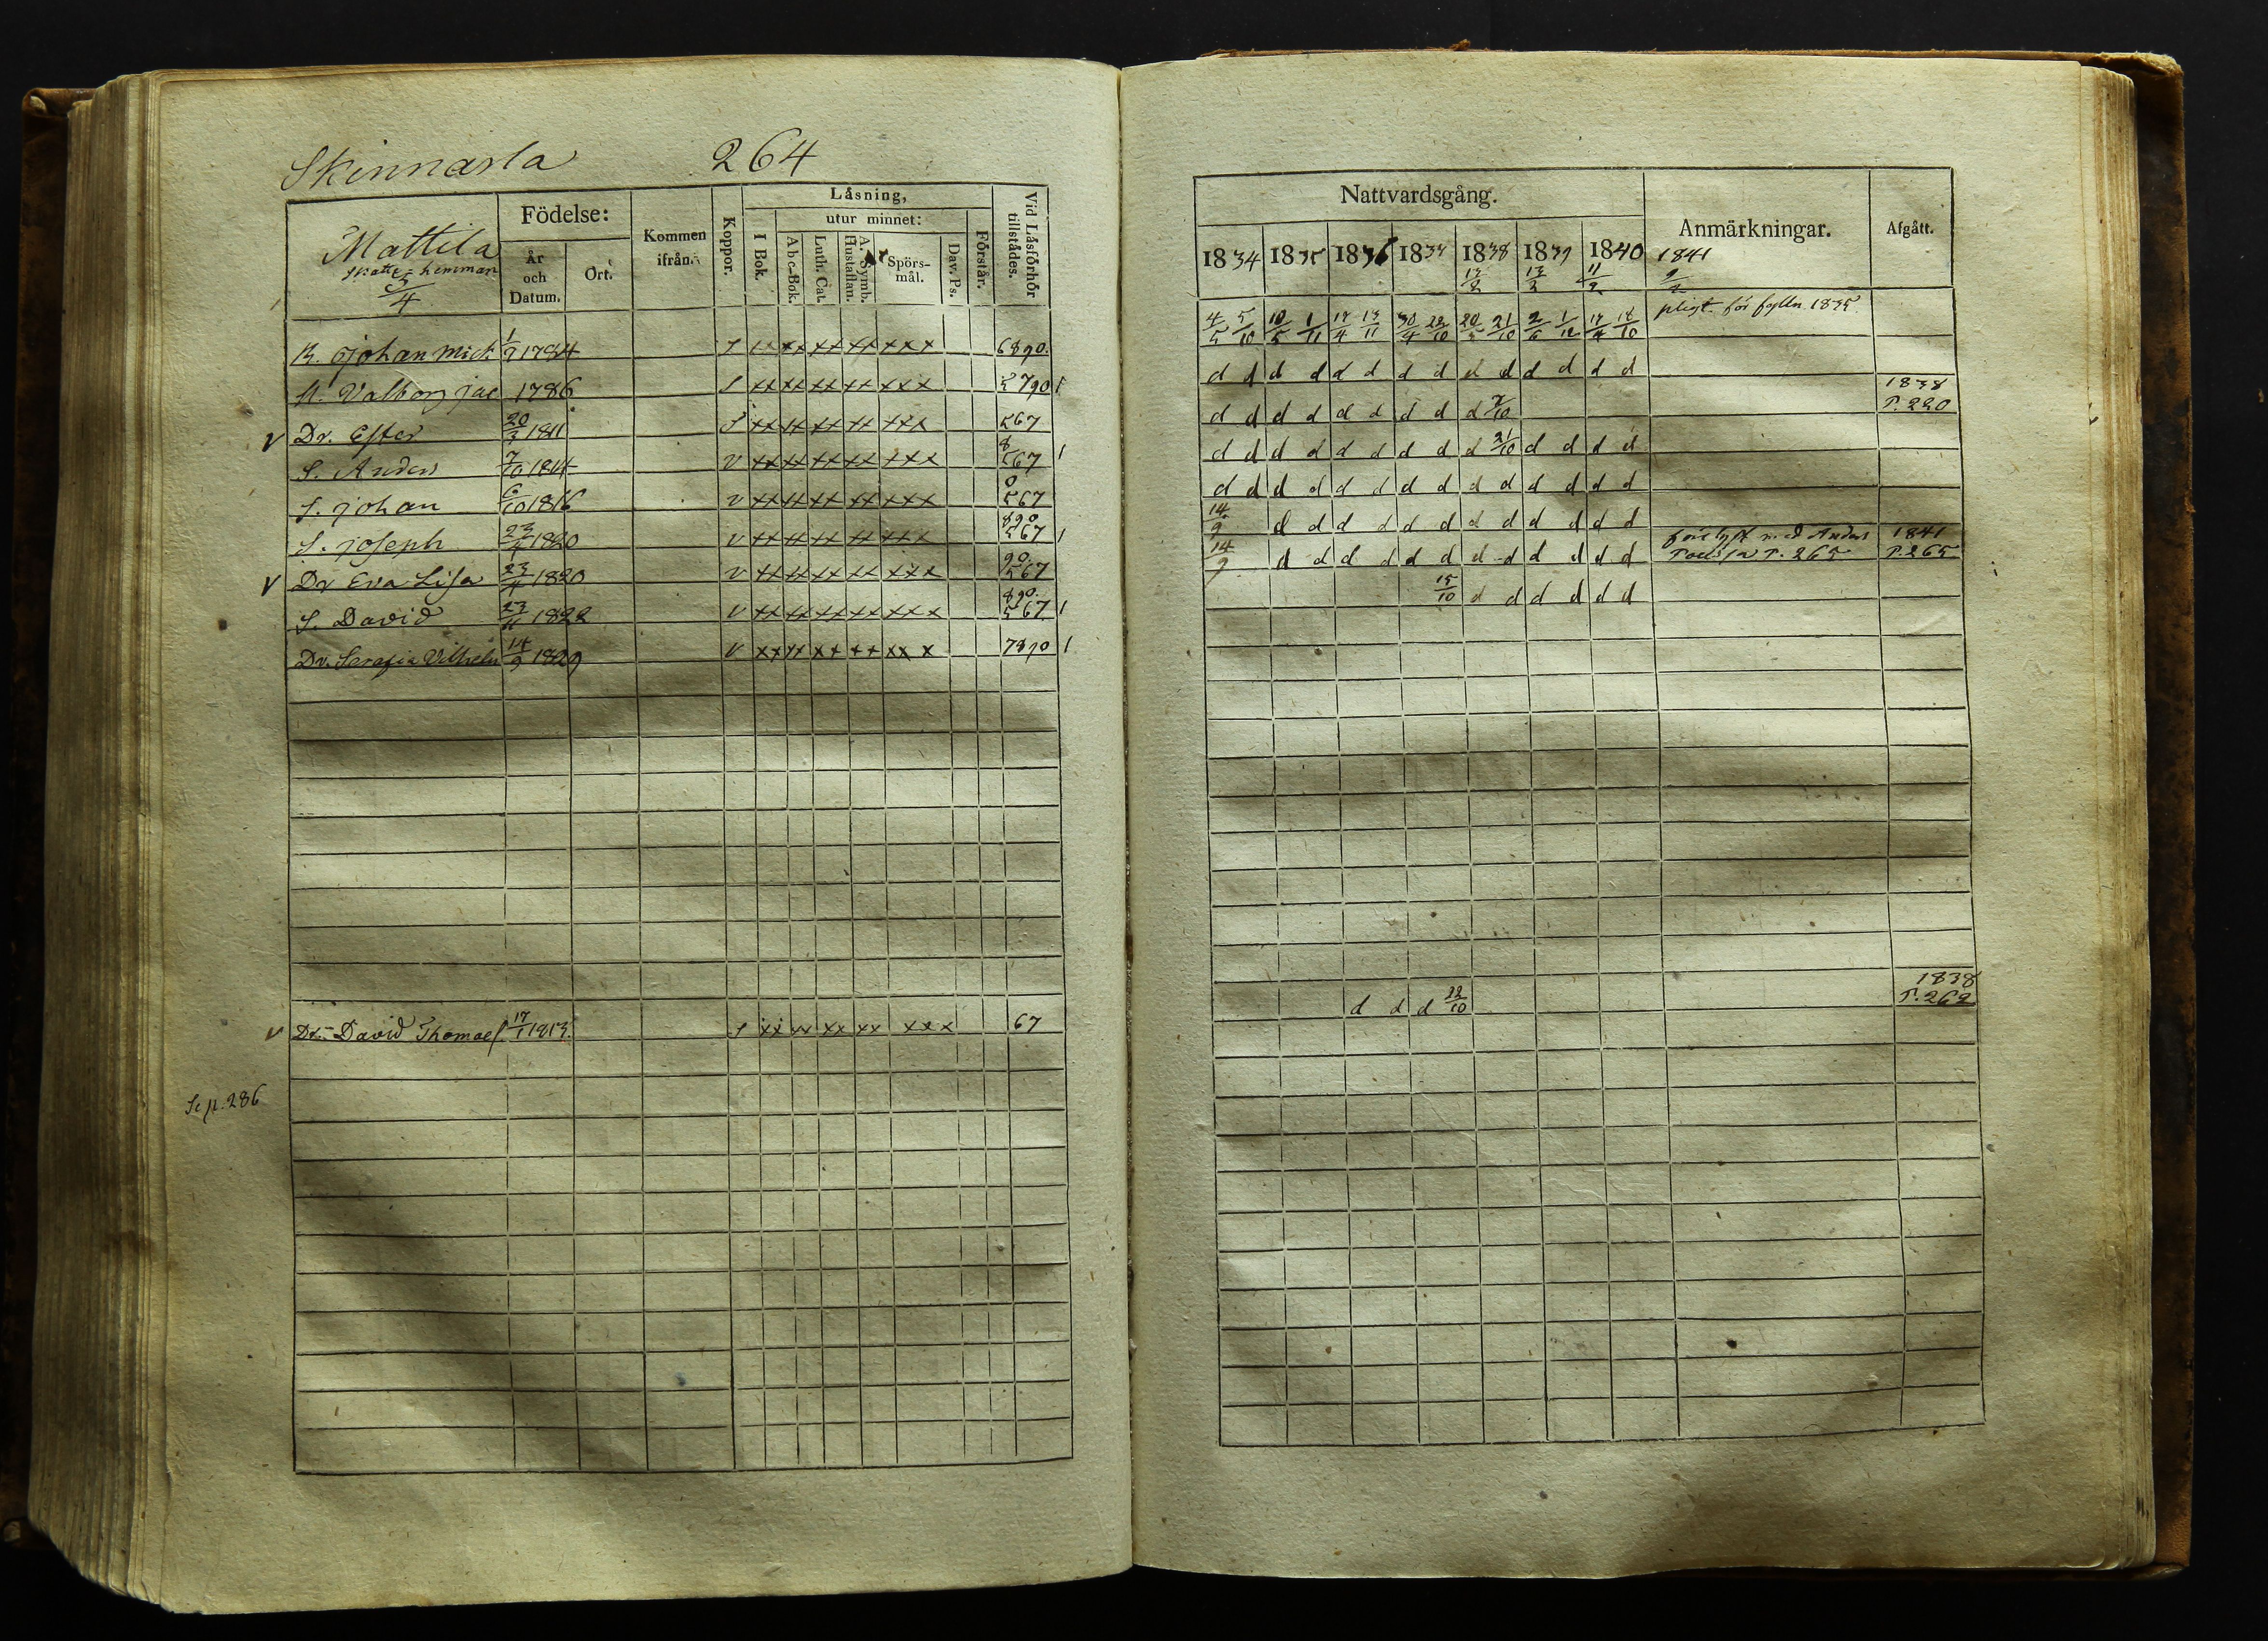 Skinnarla 264
Mattila
skatte hemman
3/4
Födelse:
År och Datum.
Ort.
Kommen ifrån.
Koppor.
Läsning,
I Bok.
utur minnet:
Abc-Bok.
Luth. Cat.
A. Symb. Hustaflan.
Spörs-mål.
Dav. Ps.
Förstår.
Vid Läsförhör tillstådes.
B. Johan Mich: 1/9 1784 S xx xx xx xx xxx 6890.
H. Valborg Jac 1786 S xx xx xx xx xxx 5790 1
v Dr. Ester 20/3 1811 S xx xx xx xx xxx 567
S. Anders 7/10 1814 v xx xx xx xx xxx 8 567 1
S. Johan 6/10 1816 v xx xx xx xx xxx 0 567
S. Joseph 23/4 1820 v xx xx xx xx xxx 890 567 1
v Dr Eva Lisa 23/4 1820 v xx xx xx xx xxx 90 567
S. David 23/11 1822 v xx xx xx xx xxx 890. 567 1
Dr. Serafia Vilhelm 14/9 1829 v xx xx xx xx xxx 7890 1
v Dr. David Thomaes. 17/1 1813. S xx xx xx xx xxx 67
Se p. 286
Nattvardsgång.
Anmärkningar.
Afgått.
1834 1835 1836 1837 1838 1839 1840 1841
13/2 13/2 11/2 9/2
4/5 5/10 10/5 1/11 17/4 13/11 30/4 22/10 20/5 21/10 2/6 1/12 17/4 18/10 pligt. för fylleri 1835.
d d d d d d d d d d d d d d
d d d d d d d d d 7/10 1838 P. 220
d d d d d d d d d 21/10 d d d d
d d d d d d d d d d d d d d
14/9 d d d d d d d d d d d d
14/9 d d d d d d d d d d d d P. 265 1841 P. 265
15/10 d d d d d d
d d d 22/10 1838 P. 262